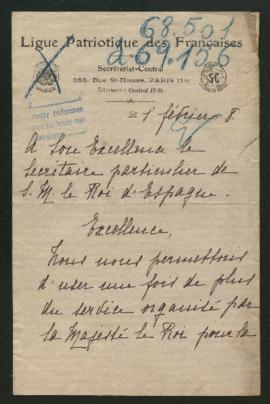 68.501
Ligue Patriotique des Françaises
Secrétariat-Central
368, Rue St-Honoré, PARIS
Téléphone : Central
1 février 8.
A Son Excellence le
Secrétaire particulier de
S. M. le Roi d'Espagne.
Excellence,
Nous nous permettons
d'user une fois de plus
du service organisé par
sa Majesté le Roi pour la